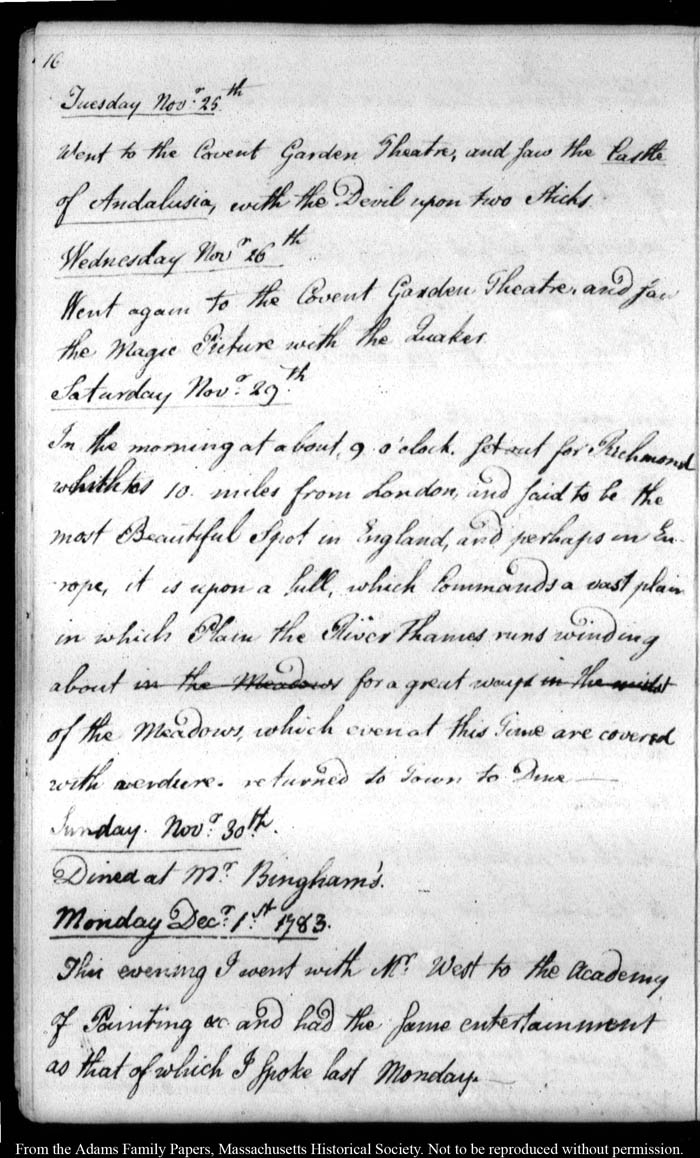 16
Tuesday Novr. 25th
Went to the Covent Garden Theatre, and saw the Castle
of Andalusia, with the Devil upon two Sticks.
Wednesday Novr. 26th
Went again to the Covent Garden Theatre, and saw
the Magic Picture with the Quaker.
Saturday Novr. 29th
In the morning at about, 9 o'clock. Set out for Richmond
which is 10. miles from London, and said to be the
most Beautiful Spot in England, and perhaps in Eu-
rope, it is upon a hill, which Commands a vast plain
in which Plain the River Thames runs winding
about in the Meadows for a great ways in the midst
of the Meadows, which even at this Time are covered
with verdure. returned to Town to Dine
Sunday. Novr. 30th.
Dined at Mr. Bingham's.
Monday Decr. 1st. 1783.
This evening I went with Mr. West to the Academy
of Painting &c and had the same entertainment
as that of which I spoke last Monday.
From the Adams Family Papers, Massachusetts Historical Society. Not to be reproduced without permission.